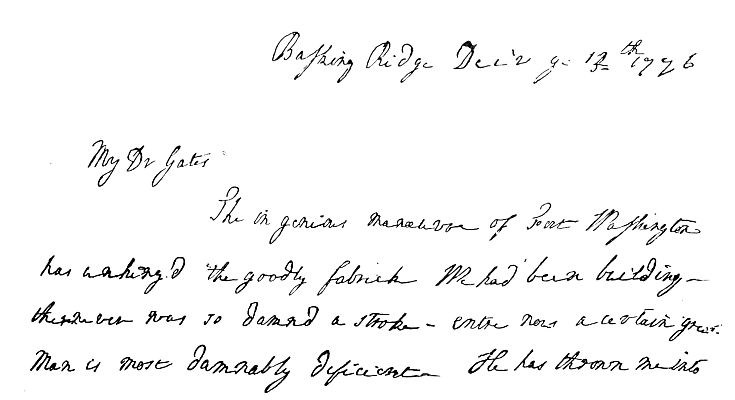 Basking Ridge Dec'r ye 13th 1776
My Dr Gates
The ingenious manœuvre of Fort Washington
has unhing'd the goodly fabrick We had been building—
there never was so damn'd a stroke— entre nous a certain great
Man is most damnably deficient— He has thrown me into